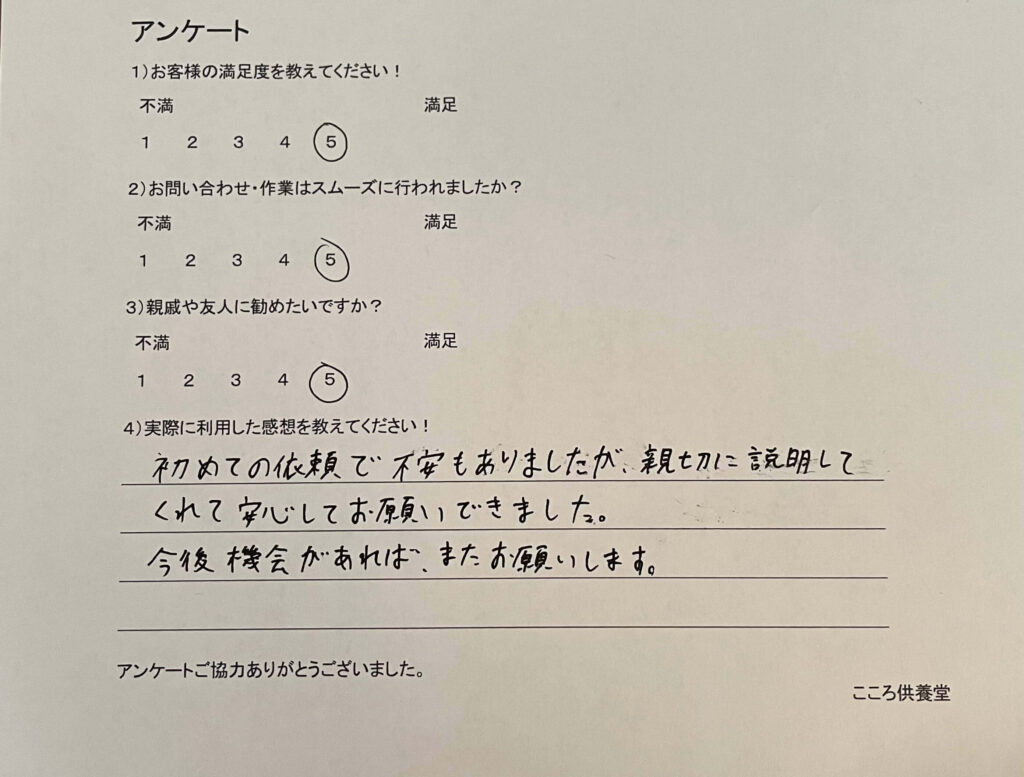 アンケート
1)お客様の満足度を教えてください！
不満 満足
1 2 3 4 5
2)お問い合わせ・作業はスムーズに行われましたか？
不満 満足
1 2 3 4 5
3)親戚や友人に勧めたいですか？
不満 満足
1 2 3 4 5
4)実際に利用した感想を教えてください！
初めての依頼で不安もありましたが、親切に説明して
くれて安心してお願いできました。
今後機会があれば、またお願いします。
アンケートご協力ありがとうございました。
こころ供養堂